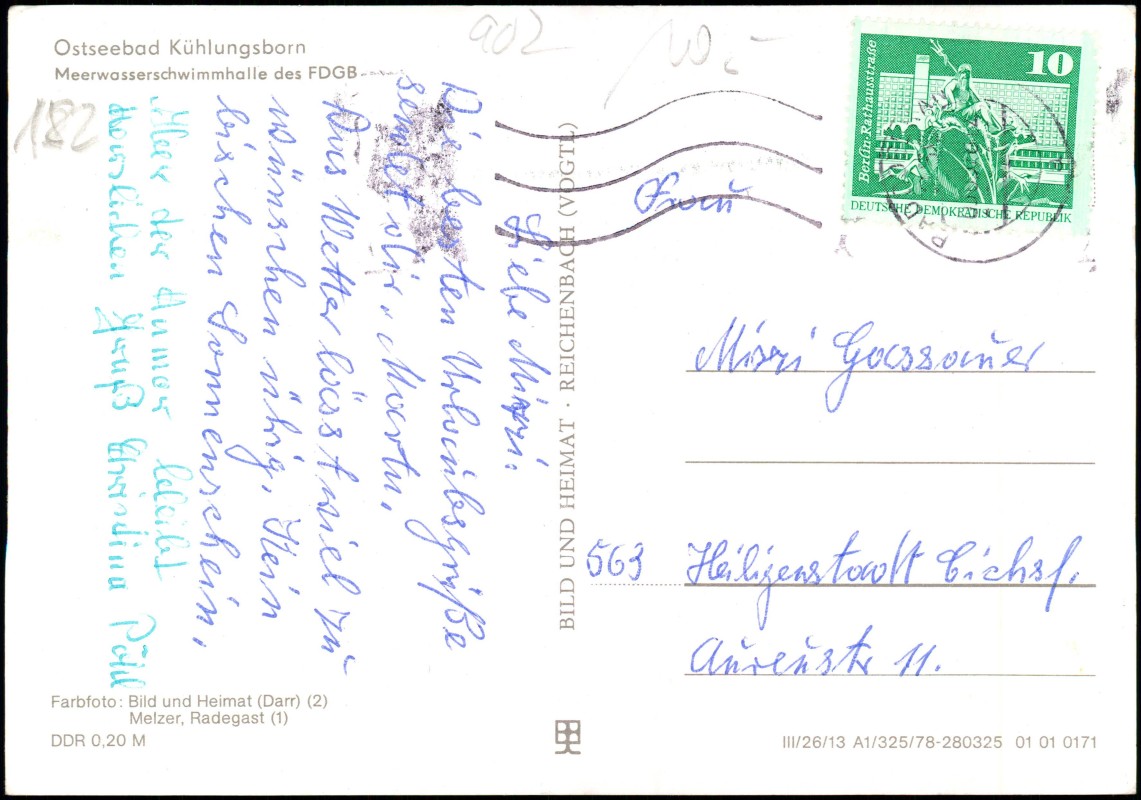 Ostseebad Kühlungsborn
Meerwasserschwimmhalle des FDGB
902
182
Liebe Mizzi.
Die besten Urlaubsgrüße
sendet dir
Das Wetter läss t viel zu
wünschen übrig, Kein
bischen Sonnenschein.
Aber der Humor bleibt
Herzlichen Gruß Christina
BILD UND HEIMAT · REICHENBACH (VOGTL)
10
Berlin-Rathausstraße
DEUTSCHE DEMOKRATISCHE REPUBLIK
Frau
Mizzi Gassauer
563 Heiligenstadt Eichsf.
Aureustr 11.
Farbfoto: Bild und Heimat (Darr) (2)
Melzer, Radegast (1)
DDR 0,20 M
III/26/13 A1/325/78-280325 01 01 0171